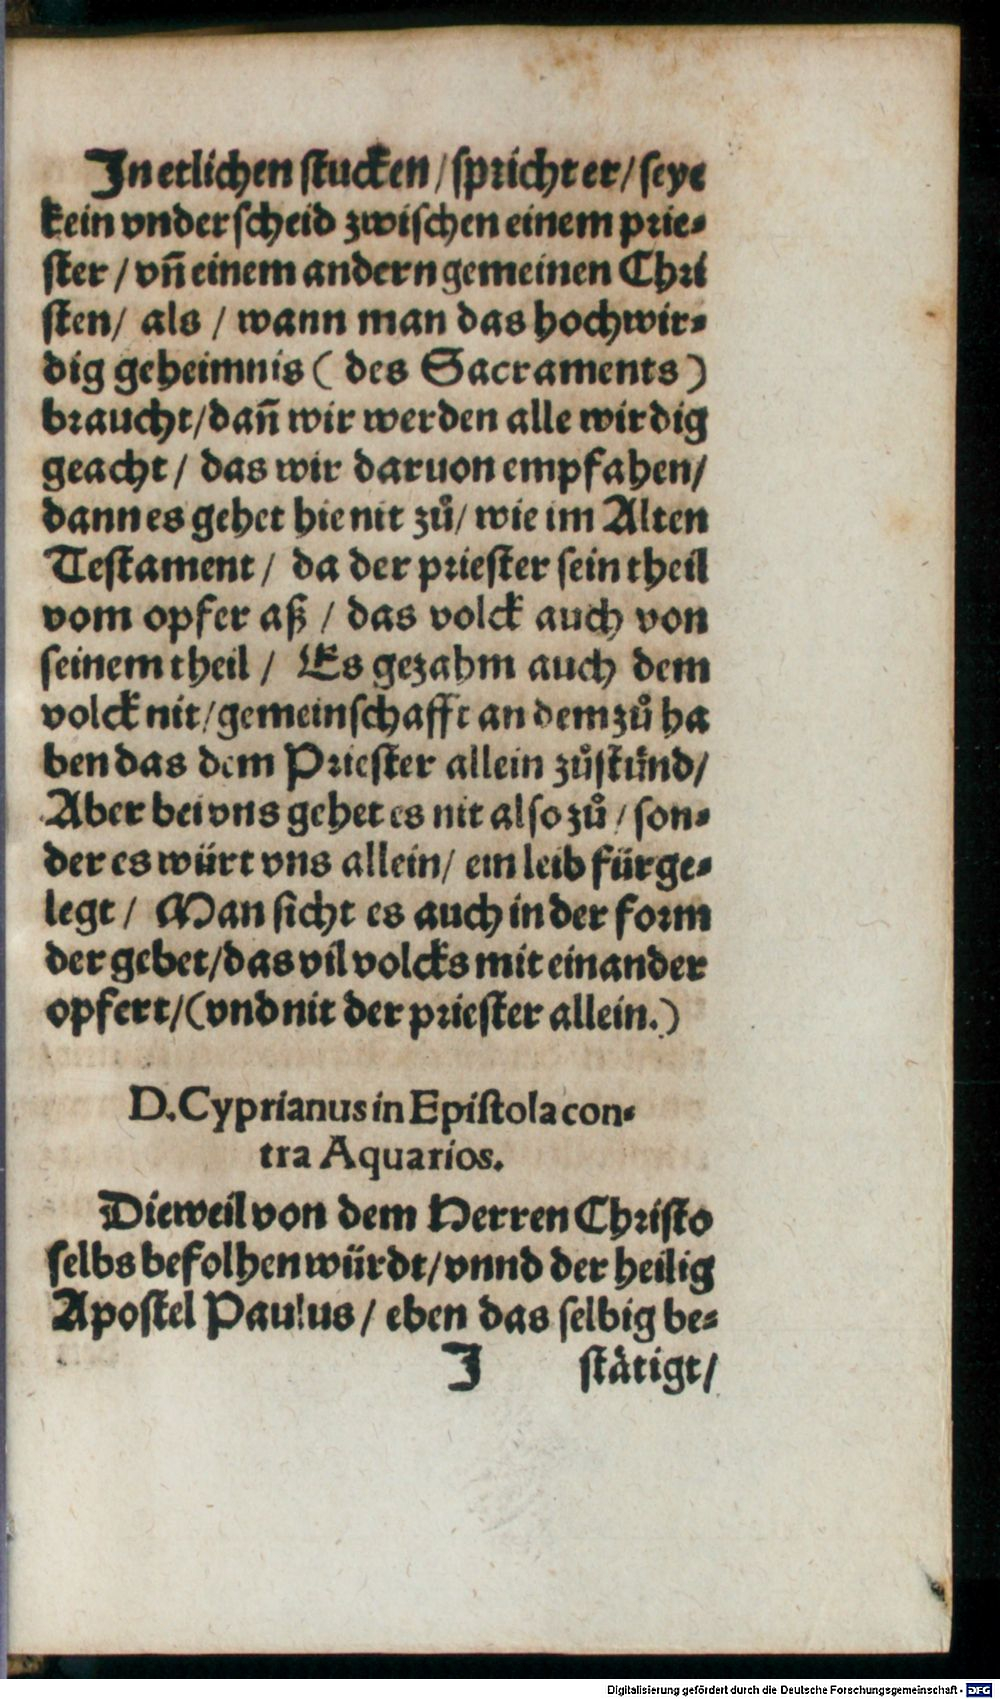 In etlichen stucken / spricht er / seye
kein vnderscheid zwischen einem prie-
ster / vñ einem andern gemeinen Chri
sten / als / wann man das hochwir-
dig geheimnis ( des Sacraments )
braucht / dañ wir werden alle wirdig
geacht / das wir daruon empfahen /
dann es gehet hie nit zů / wie im Alten
Testament / da der priester sein theil
vom opfer aß / das volck auch von
seinem theil / Es gezahm auch dem
volck nit / gemeinschafft an dem zů ha
ben das dem Priester allein zůstünd /
Aber bei vns gehet es nit also zů / son-
der es würt vns allein / ein leib fürge-
legt / Man sicht es auch in der form
der gebet / das vil volcks mit einander
opfert / (vnd nit der priester allein.)
D. Cyprianus in Epistola con-
tra Aquarios.
Dieweil von dem Herren Christo
selbs befolhen würdt / vnnd der heilig
Apostel Paulus / eben das selbig be-
I stätigt /
Digitalisierung gefördert durch die Deutsche Forschungsgemeinschaft - DFG